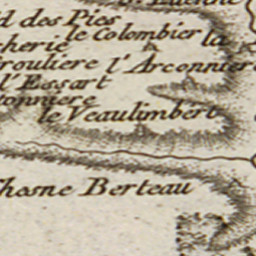 d des Pies
le Colombier la
cherie
rouliere l'Arconnier
l'Essart
onniere
le Veaulimbert
hasne Berteau